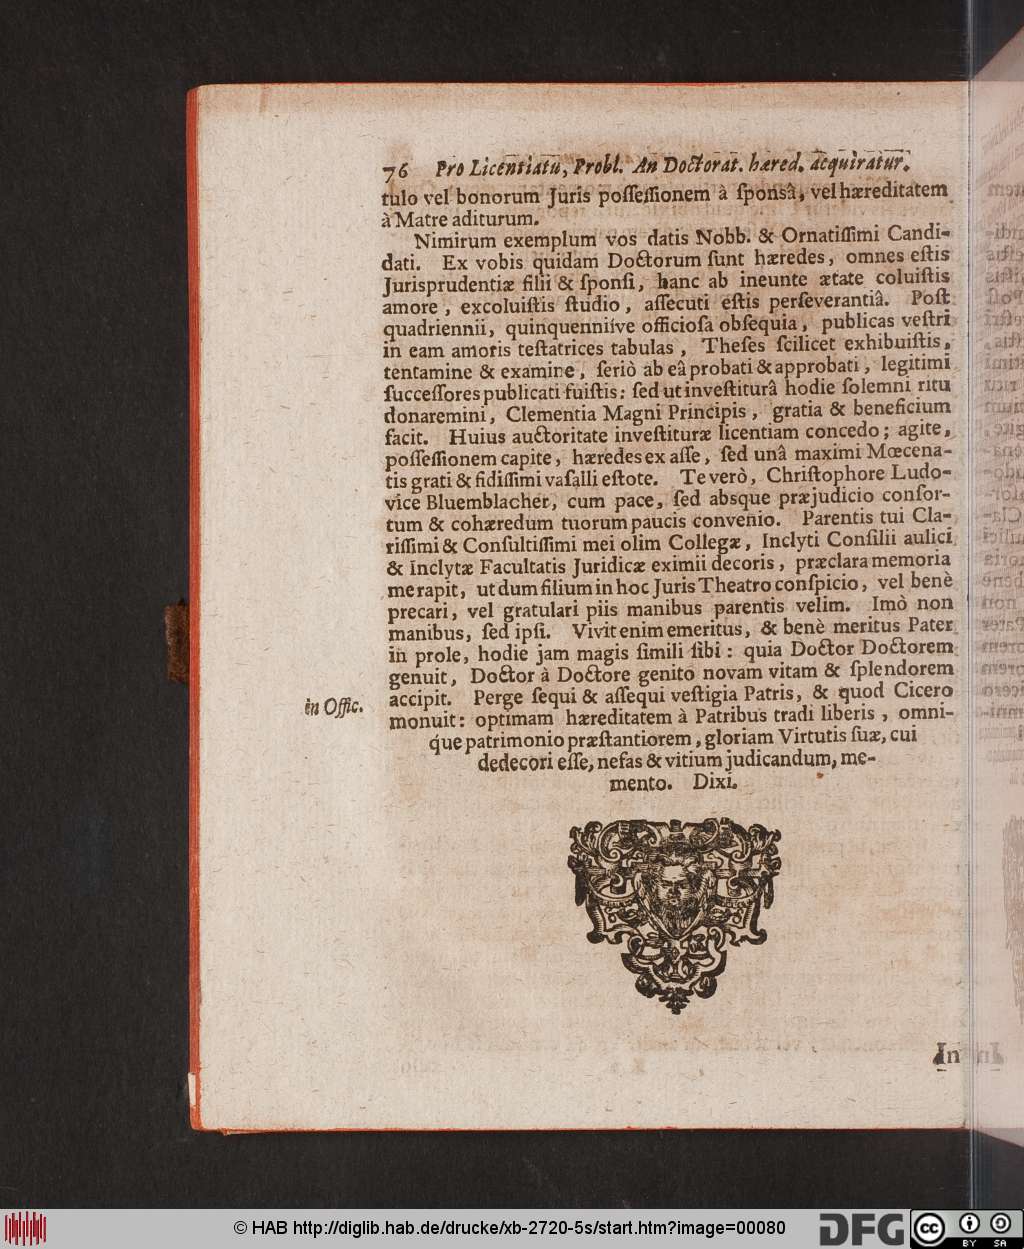 76 Pro Licentiatu, Probl. An Doctorat. hæred. acquiratur.
tulo vel bonorum Juris poſſeſſionem à ſponsâ, vel hæreditatem
à Matre aditurum.
Nimirum exemplum vos datis Nobb. & Ornatiſſimi Candi-
dati. Ex vobis quidam Doctorum ſunt hæredes, omnes eſtis
Jurisprudentiæ filii & ſponſi, hanc ab ineunte ætate coluiſtis
amore, excoluiſtis ſtudio, aſſecuti eſtis perſeverantiâ. Poſt
quadriennii, quinquenniive officioſa obſequia, publicas veſtri
in eam amoris teſtatrices tabulas, Theſes ſcilicet exhibuiſtis,
tentamine & examine, ſeriò ab eâ probati & approbati, legitimi
ſucceſſores publicati fuiſtis: ſed ut inveſtiturâ hodie ſolemni ritu
donaremini, Clementia Magni Principis, gratia & beneficium
facit. Huius auctoritate inveſtituræ licentiam concedo; agite,
poſſeſſionem capite, hæredes ex aſſe, ſed unâ maximi Mœcena-
tis grati & fidiſſimi vaſalli eſtote. Te verò, Chriſtophore Ludo-
vice Bluemblacher, cum pace, ſed absque præjudicio confor-
tum & cohæredum tuorum paucis convenio. Parentis tui Cla-
riſſimi & Conſultiſſimi mei olim Collegæ, Inclyti Conſilii aulici
& Inclytæ Facultatis Juridicæ eximii decoris, præclara memoria
me rapit, ut dum filium in hoc Juris Theatro conſpicio, vel benè
precari, vel gratulari piis manibus parentis velim. Imò non
manibus, ſed ipſi. Vivit enim emeritus, & benè meritus Pater
in prole, hodie jam magis ſimili ſibi: quia Doctor Doctorem
genuit, Doctor à Doctore genito novam vitam & ſplendorem
accipit. Perge ſequi & aſſequi veſtigia Patris, & quod Cicero
in Offic.
monuit: optimam hæreditatem à Patribus tradi liberis, omni-
que patrimonio præſtantiorem, gloriam Virtutis ſuæ, cui
dedecori eſſe, nefas & vitium judicandum, me-
mento. Dixi.
In
© HAB http://diglib.hab.de/drucke/xb-2720-5s/start.htm?image=00080
DFG
cc BY SA